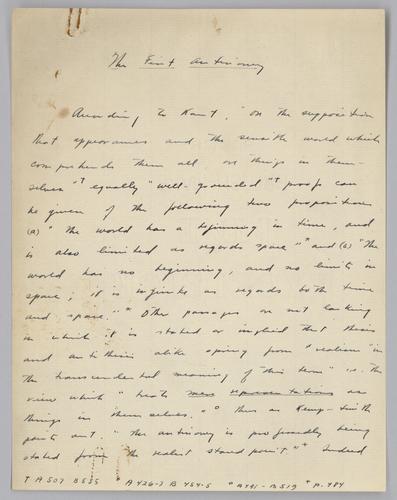 The First Antinomy
According to Kant, "on the supposition
that appearances and the sensible world which
comprehends them all, are things in them-
selves"† equally "well-grounded"† proofs can
be given of the following two propositions
(a) "The world has a beginning in time, and
is also limited as regards space"* and (b) "The
world has no beginning, and no limits in
space; it is infinite as regards both time
and space."* Other passages are not lacking
in which it is stated or implied that thesis
and antithesis alike spring from "realism" in
the transcendental meaning of this term" i.e. the
view which "treats mere representations as
things in themselves."° Thus as Kemp-Smith
puts it "the antinomy is professedly being
stated from the realist standpoint"+ Indeed
† A507 B535 * A426-7 B454-5 ° A491-B519 + p. 484